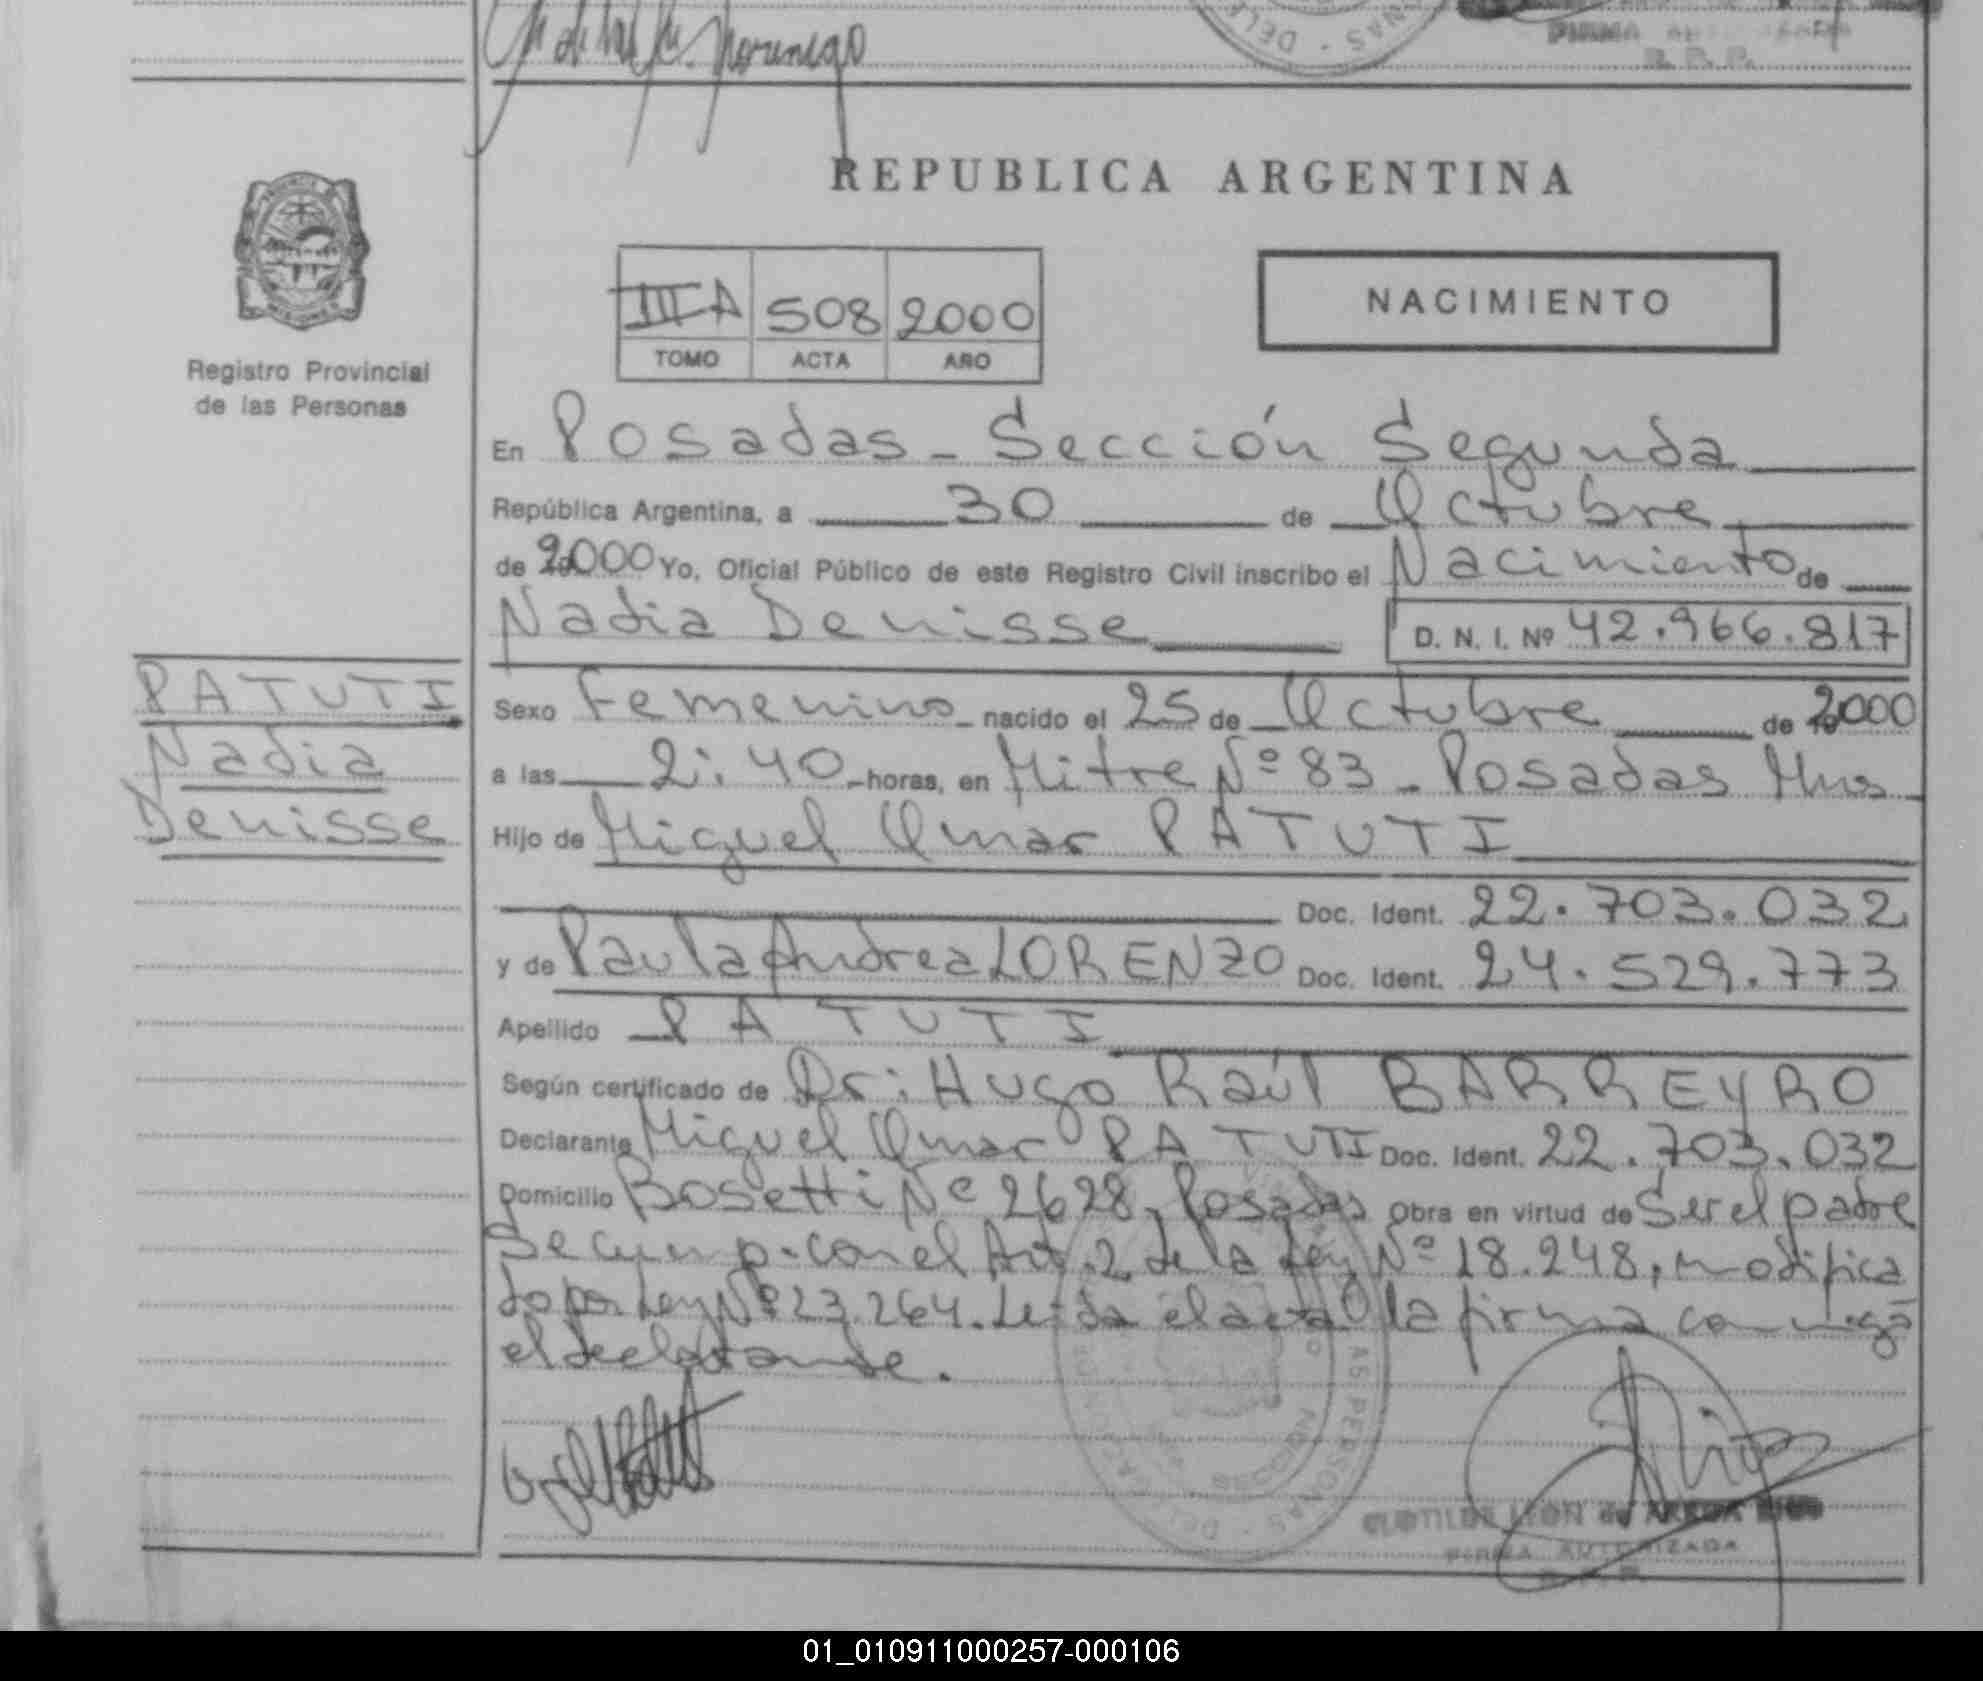 FIRMA AUTORIZADA
R. P. P.
REPUBLICA ARGENTINA
III A 508 2000
TOMO ACTA AÑO
NACIMIENTO
Registro Provincial
de las Personas
En Posadas - Sección Segunda
República Argentina, a 30 de Octubre
de 2000 Yo, Oficial Público de este Registro Civil inscribo el Nacimiento de
Nadia Denisse D. N. I. Nº 42.966.817
PATUTI
Nadia
Denisse
Sexo Femenino nacido el 25 de Octubre de 2000
a las 2:40 horas, en Mitre Nº 83 - Posadas Mns
Hijo de Miguel Omar PATUTI
Doc. Ident. 22.703.032
y de Paula Andrea LORENZO Doc. Ident. 24.529.773
Apellido PATUTI
Según certificado de Dr: Hugo Raúl BARREYRO
Declarante Miguel Omar PATUTI Doc. Ident. 22.703.032
Domicilio Bosetti Nº 2628, Posadas Obra en virtud de Ser el padre
Se cump. con el Art. 2 de la Ley Nº 18.248, modifica
do por Ley Nº 23.264. Leída el acta la firma conmigo
el declarante.
AS PERSONAS - DELEGACION
SECCION
CLOTILDE LEON de
FIRMA AUTORIZADA
01_010911000257-000106